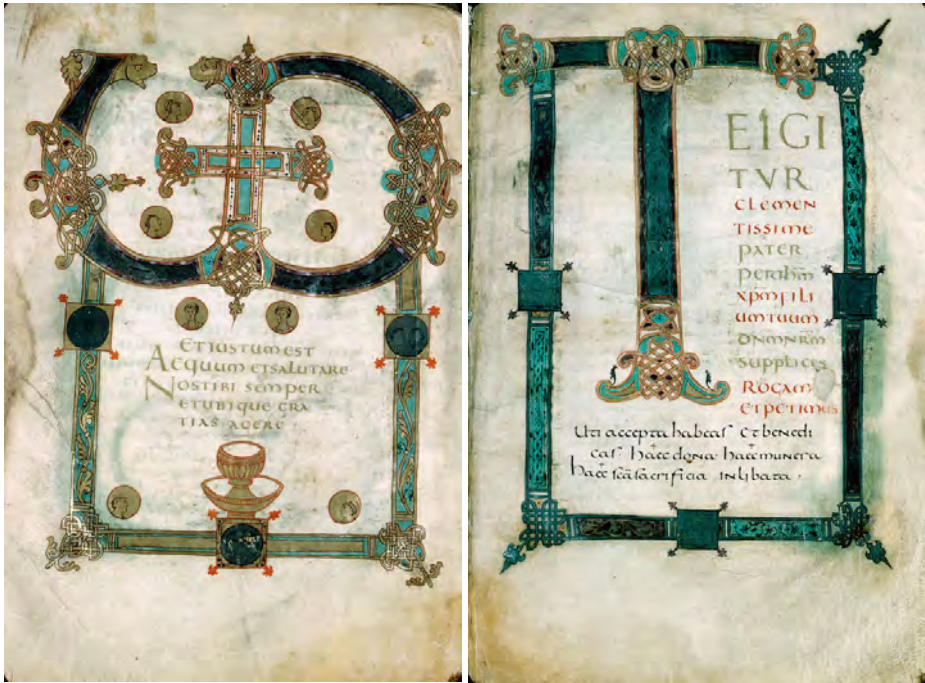 VD
ET IUSTUM EST
AEQUUM ET SALUTARE
NOS TIBI SEMPER
ET UBIQUE GRA
TIAS AGERE ·
T
E IGI
TVR
CLEMEN
TISSIME
PATER
PER IHM
XPM FILI
UM TUUM
DNM NRM
SUPPLICES
ROGAM
ET PETIMUS
Uti accepta habeas et benedi
cas haec dona haec munera
haec sca sacrificia inlibata ·